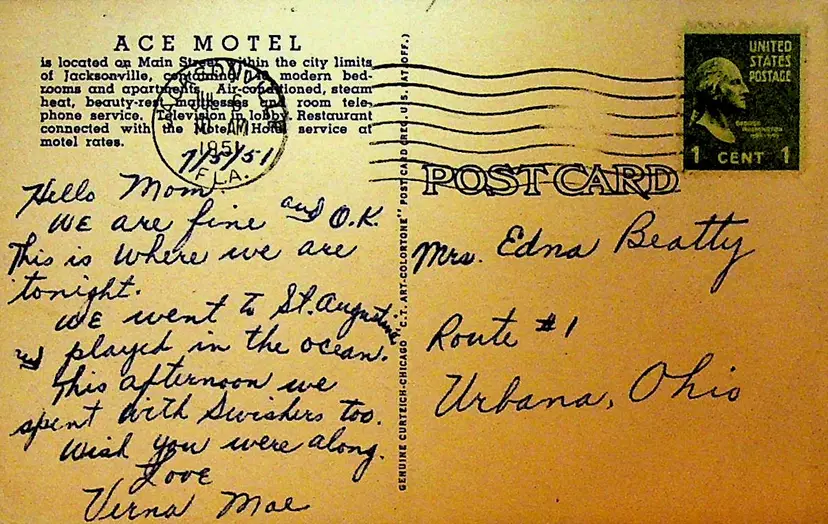 ACE MOTEL
is located on Main Street within the city limits
of Jacksonville, containing modern bed-
rooms and apartments. Air-conditioned, steam
heat, beauty-rest mattresses and room tele-
phone service. Television in lobby. Restaurant
connected with the Motel. Hotel service at
motel rates.
JUL 6
AM
1951
FLA.
7/5/51
Hello Mom
WE are fine and O.K.
This is where we are
tonight.
WE went to St. Augustine
and played in the ocean.
This afternoon we
spent with Swishers too.
Wish you were along.
Love
Verna Mae
GENUINE CURTEICH-CHICAGO "C.T. ART-COLORTONE" POST CARD (REG. U.S. PAT. OFF.)
UNITED
STATES
POSTAGE
GEORGE
WASHINGTON
1 CENT 1
POST CARD
Mrs. Edna Beatty
Route #1
Urbana, Ohio